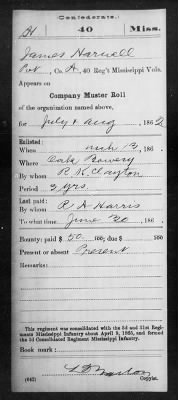 Confederate.
H 40 Miss.
James Harvell
Pvt, Co. A, 40 Reg't Mississippi Vols.
Appears on
Company Muster Roll
of the organization named above,
for July & Aug, 1862
Enlisted:
When 3, 186
Where
By whom R. K. Clayton
Period 3 yrs.
Last paid:
By whom R A Harris
To what time June 30, 186
Bounty: paid $ 50 100; due $ 100
Present or absent Present
Remarks:
This regiment was consolidated with the 3d and 31st Regiments Mississippi Infantry about April 9, 1865, and formed the 3d Consolidated Regiment Mississippi Infantry.
Book mark:
(642)
Copyist.